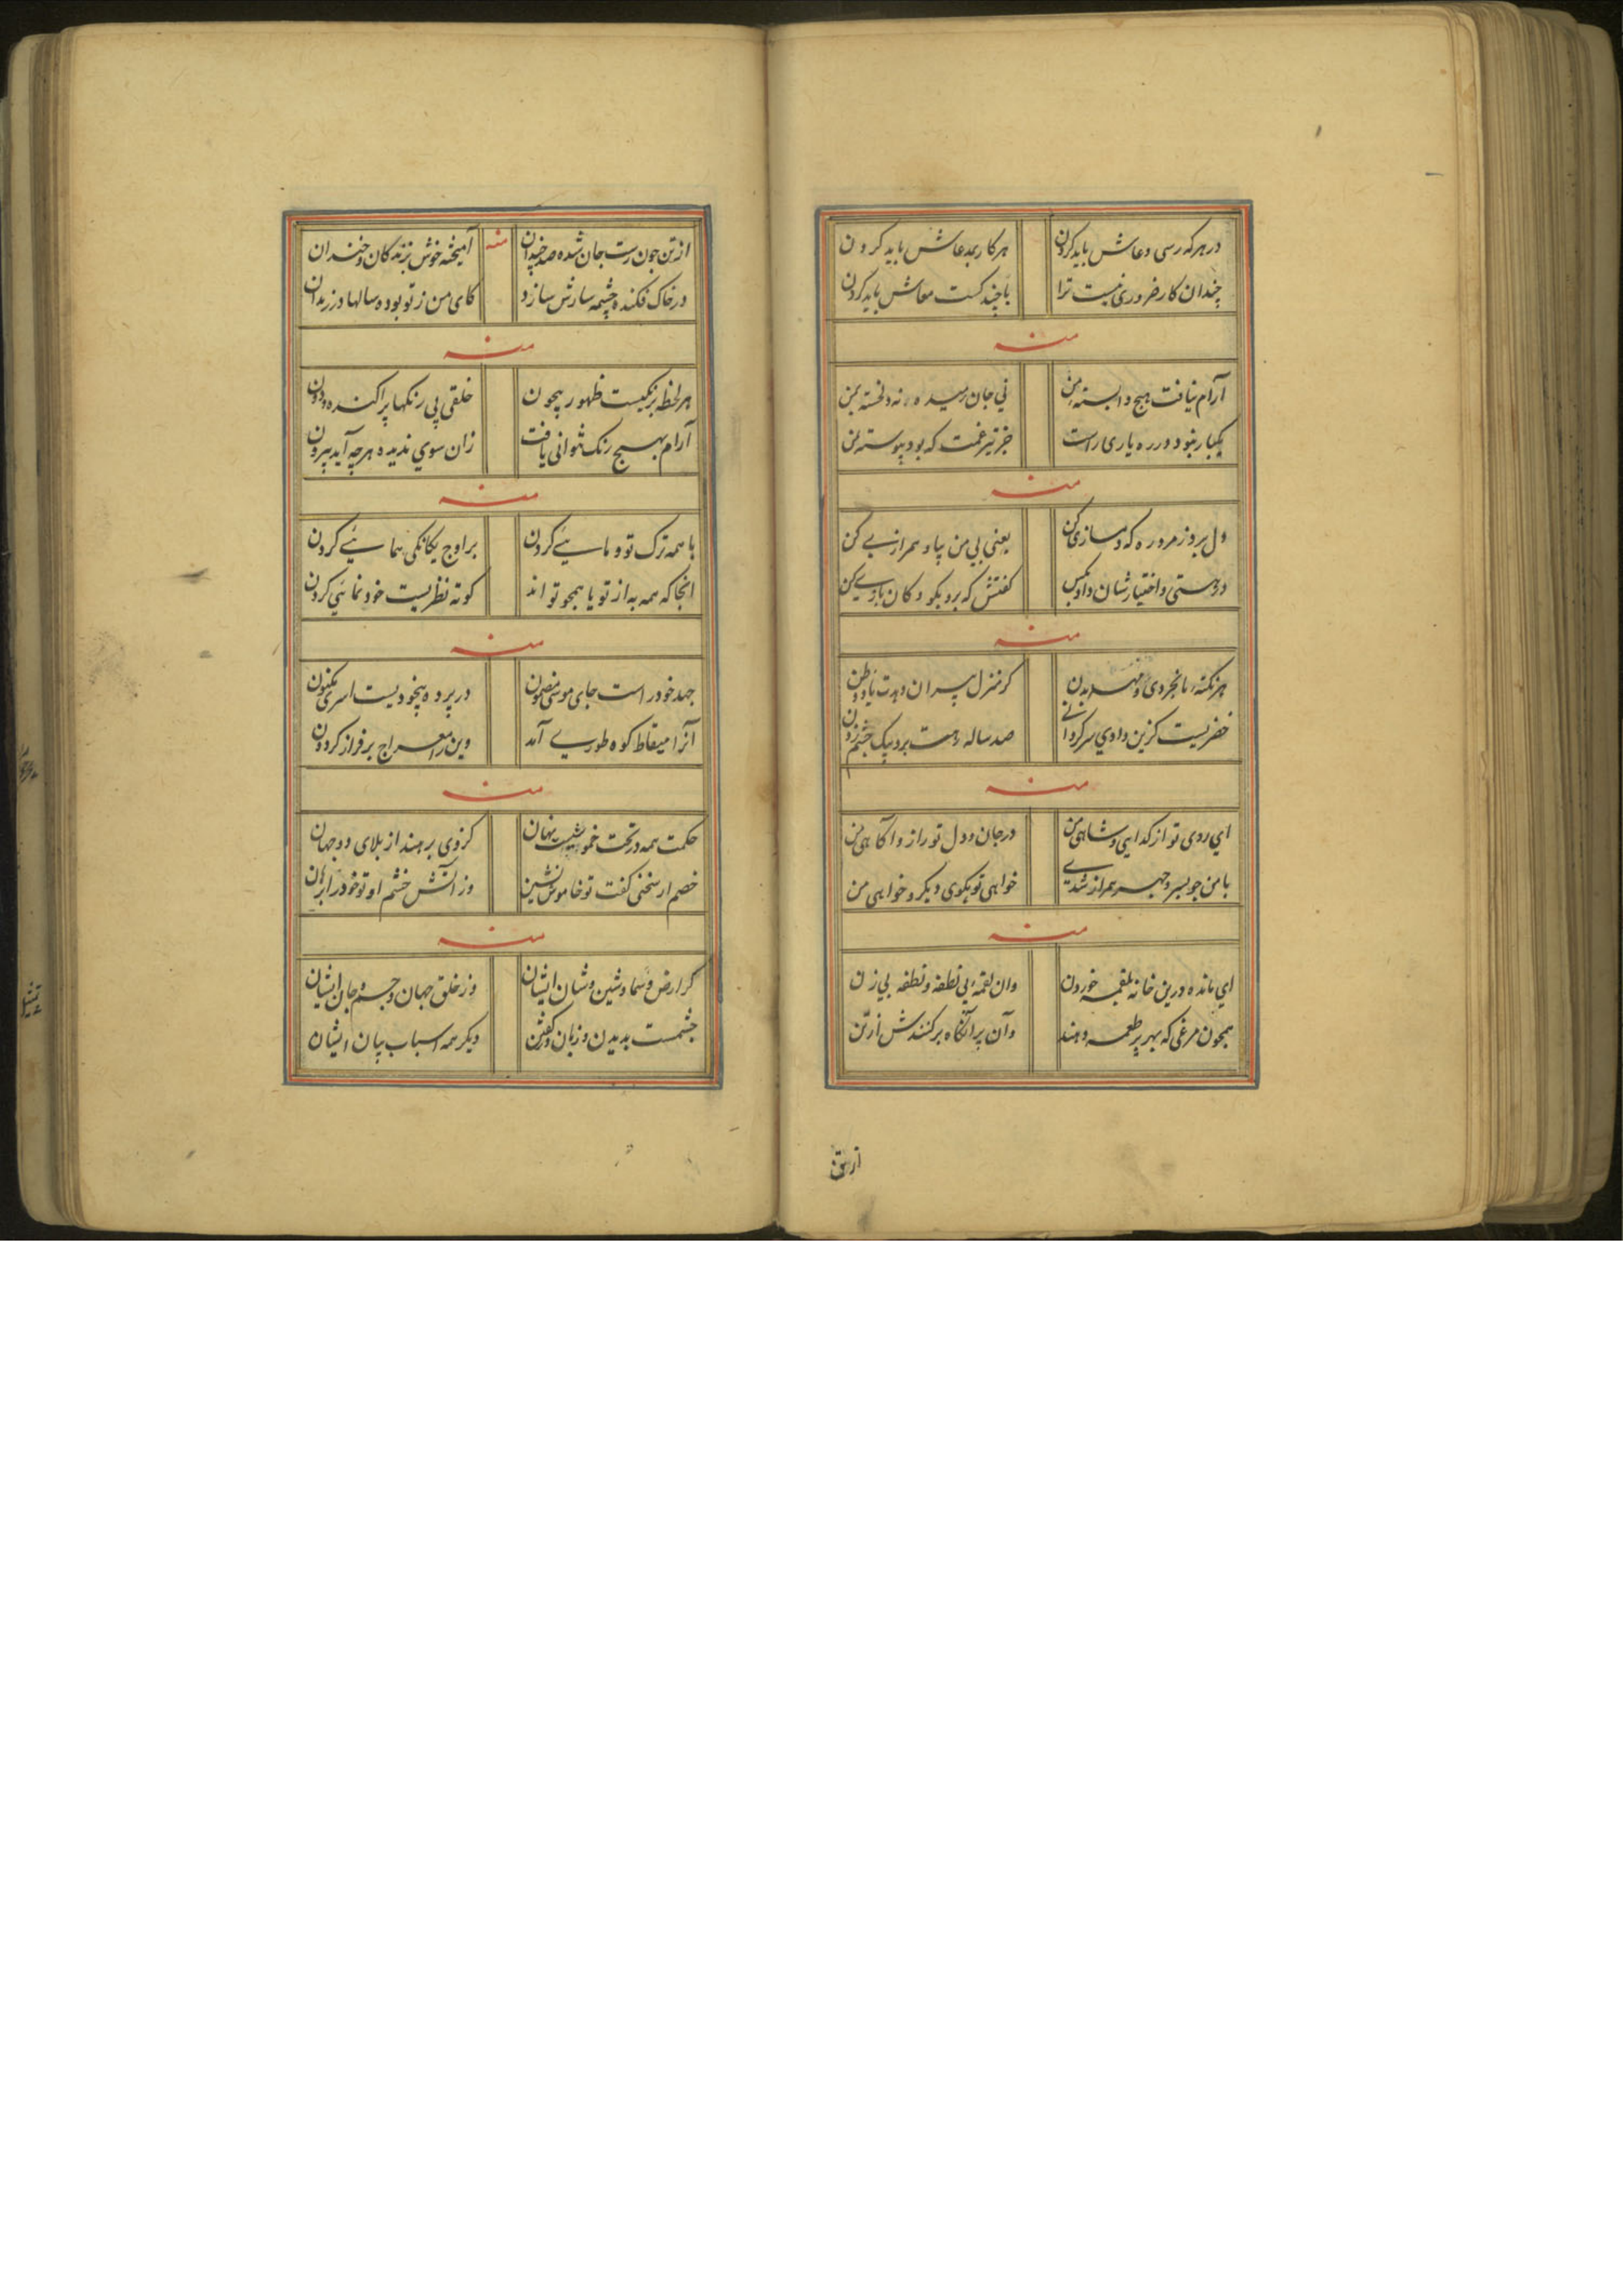 در هر که رسی دعاش باید کردن هر کار بمدعاش باید کردن
چندان کار ضروری نیست ترا با چند کست معاش باید کردن
منه
آرام نیافت هیچ وابسته من نی جان رمیده نه دلخسته من
یکبار نبود در ره یاری راست جز تیر غمت که بود پیوسته من
منه
دل برد ز من دوره که دمسازی کن یعنی بی من بیا و همرازی کن
در دستی و اختیارشان گفتش که برو بکو دکان بازی کن
منه
هر نکته
خضریست کزین وادی سرگردانی صد ساله رهت برد بیک چشم زدن
منه
ای روی تو از کدایی و شاهی من در جان و دل تو راز و آکاهی من
با من چو بسر و جهر همراز شدی خواهی تو بکوی دیکر و خواهی من
منه
ای مانده درین خانه بلقمه خوردن وان لقمه پی نطفه و نطفه پی زن
همچون مرغی که بهر پر طعمه دهند وآن پر آنکاه برکنندش از تن
از تن
از تن چون رست جان شده صد چندان منه آمیخته خوش بزندکان و خندان
در خاک فکنده چشمه سارش سازد کای من ز تو بوده سالها در زندان
منه
هر لحظه برنکیست ظهور بیچون خلقی پی رنکها پراکنده و دون
آرام بهیچ رنک نتوانی یافت زان سوی ندیده هر چه آید بیرون
منه
با همه ترک تو و مایئی کردن بر اوج یکانکی همایئی کردن
آنجا که همه به از تو یا همچو تو اند کوته نظریست خود نمائی کردن
منه
جهد خود راست جای موسی مضمون در پرده بیخودیست اسری مکنون
آنرا میقات کوه طوری آمد وین را معراج بر فراز کردون
منه
حکمت همه در تحت خموشیست نهان کز وی برهند از بلای دو جهان
خصم ار سخنی کفت تو خاموش نشین وز آتش خشم او تو خود را برهان
منه
کر ارض و سما و شین و شان ایشان وز خلق جهان و جسم و جان ایشان
چشمست بدیدن و زبان و کفتن دیکر همه اسباب بیان ایشان